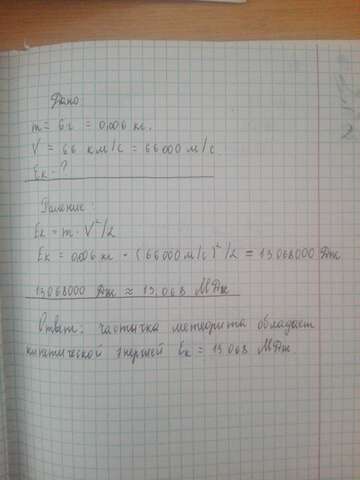 Дано
m = 6 г = 0,006 кг.
V = 66 км/с = 66000 м/с
Ек - ?
Решение:
Ек = m · V²/2
Ек = 0,006 кг · (66000 м/с)²/2 = 13068000 Дж
13068000 Дж ≈ 13,068 МДж
Ответ: частичка метеорита обладает
кинетической энергией Ек = 13,068 МДж